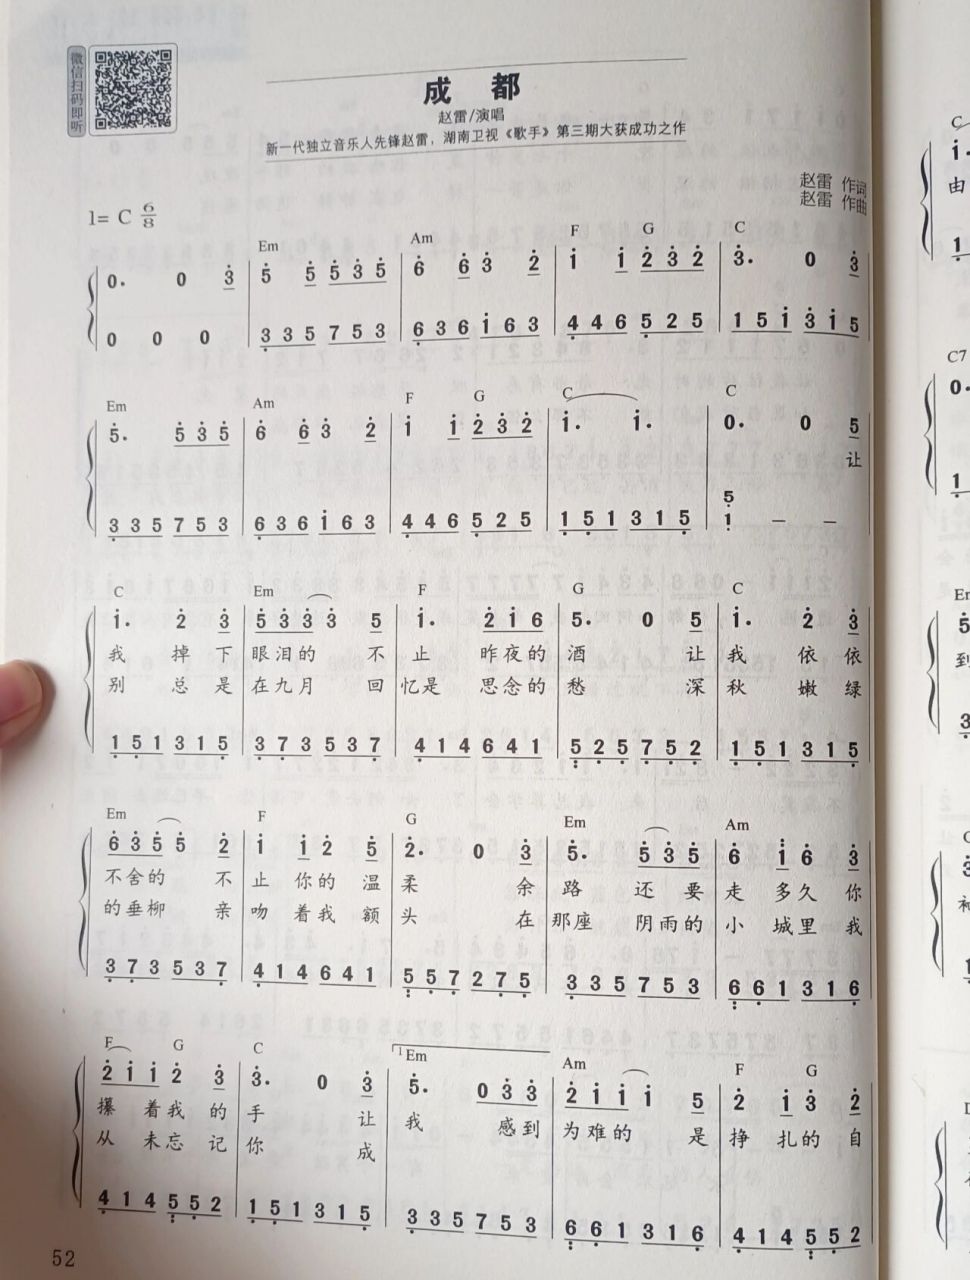 微信扫码即听
成 都
赵雷/演唱
新一代独立音乐人先锋赵雷，湖南卫视《歌手》第三期大获成功之作
赵雷 作词
赵雷 作曲
1= C 6/8
Em Am F G C
0· 0 3 5 5 5 3 5 6 6 3 2 i i 2 3 2 3· 0 3
0 0 0 3 3 5 7 5 3 6 3 6 i 6 3 4 4 6 5 2 5 1 5 i 3 i 5
Em Am F G C C
5· 5 3 5 6 6 3 2 i i 2 3 2 i· i· 0· 0 5
让
3 3 5 7 5 3 6 3 6 i 6 3 4 4 6 5 2 5 1 5 1 3 1 5 5 1 – –
C Em F G C
i· 2 3 5 3 3 3 5 i· 2 i 6 5· 0 5 i· 2 3
我 掉 下 眼泪的 不 止 昨夜的 酒 让 我 依 依
别 总 是 在九月 回 忆是 思念的 愁 深 秋 嫩 绿
1 5 1 3 1 5 3 7 3 5 3 7 4 1 4 6 4 1 5 2 5 7 5 2 1 5 1 3 1 5
Em F G Em Am
6 3 5 5 2 i i 2 5 2· 0 3 5· 5 3 5 6 i 6 3
不舍的 不 止 你的 温 柔 余 路 还 要 走 多久 你
的垂柳 亲 吻 着我 额 头 在 那座 阴雨的 小 城里 我
3 7 3 5 3 7 4 1 4 6 4 1 5 5 7 2 7 5 3 3 5 7 5 3 6 6 1 3 1 6
F G C 1 Em Am F G
2 i i 2 3 3· 0 3 5· 0 3 3 2 i i i 5 2 i 3 2
攥 着我 的 手 让 我 感到 为难的 是 挣 扎的 自
从 未忘 记 你 成
4 1 4 5 5 2 1 5 1 3 1 5 3 3 5 7 5 3 6 6 1 3 1 6 4 1 4 5 5 2
52
C
i·
由
1
C7
0·
1
Em
5
到
3
C
3
1